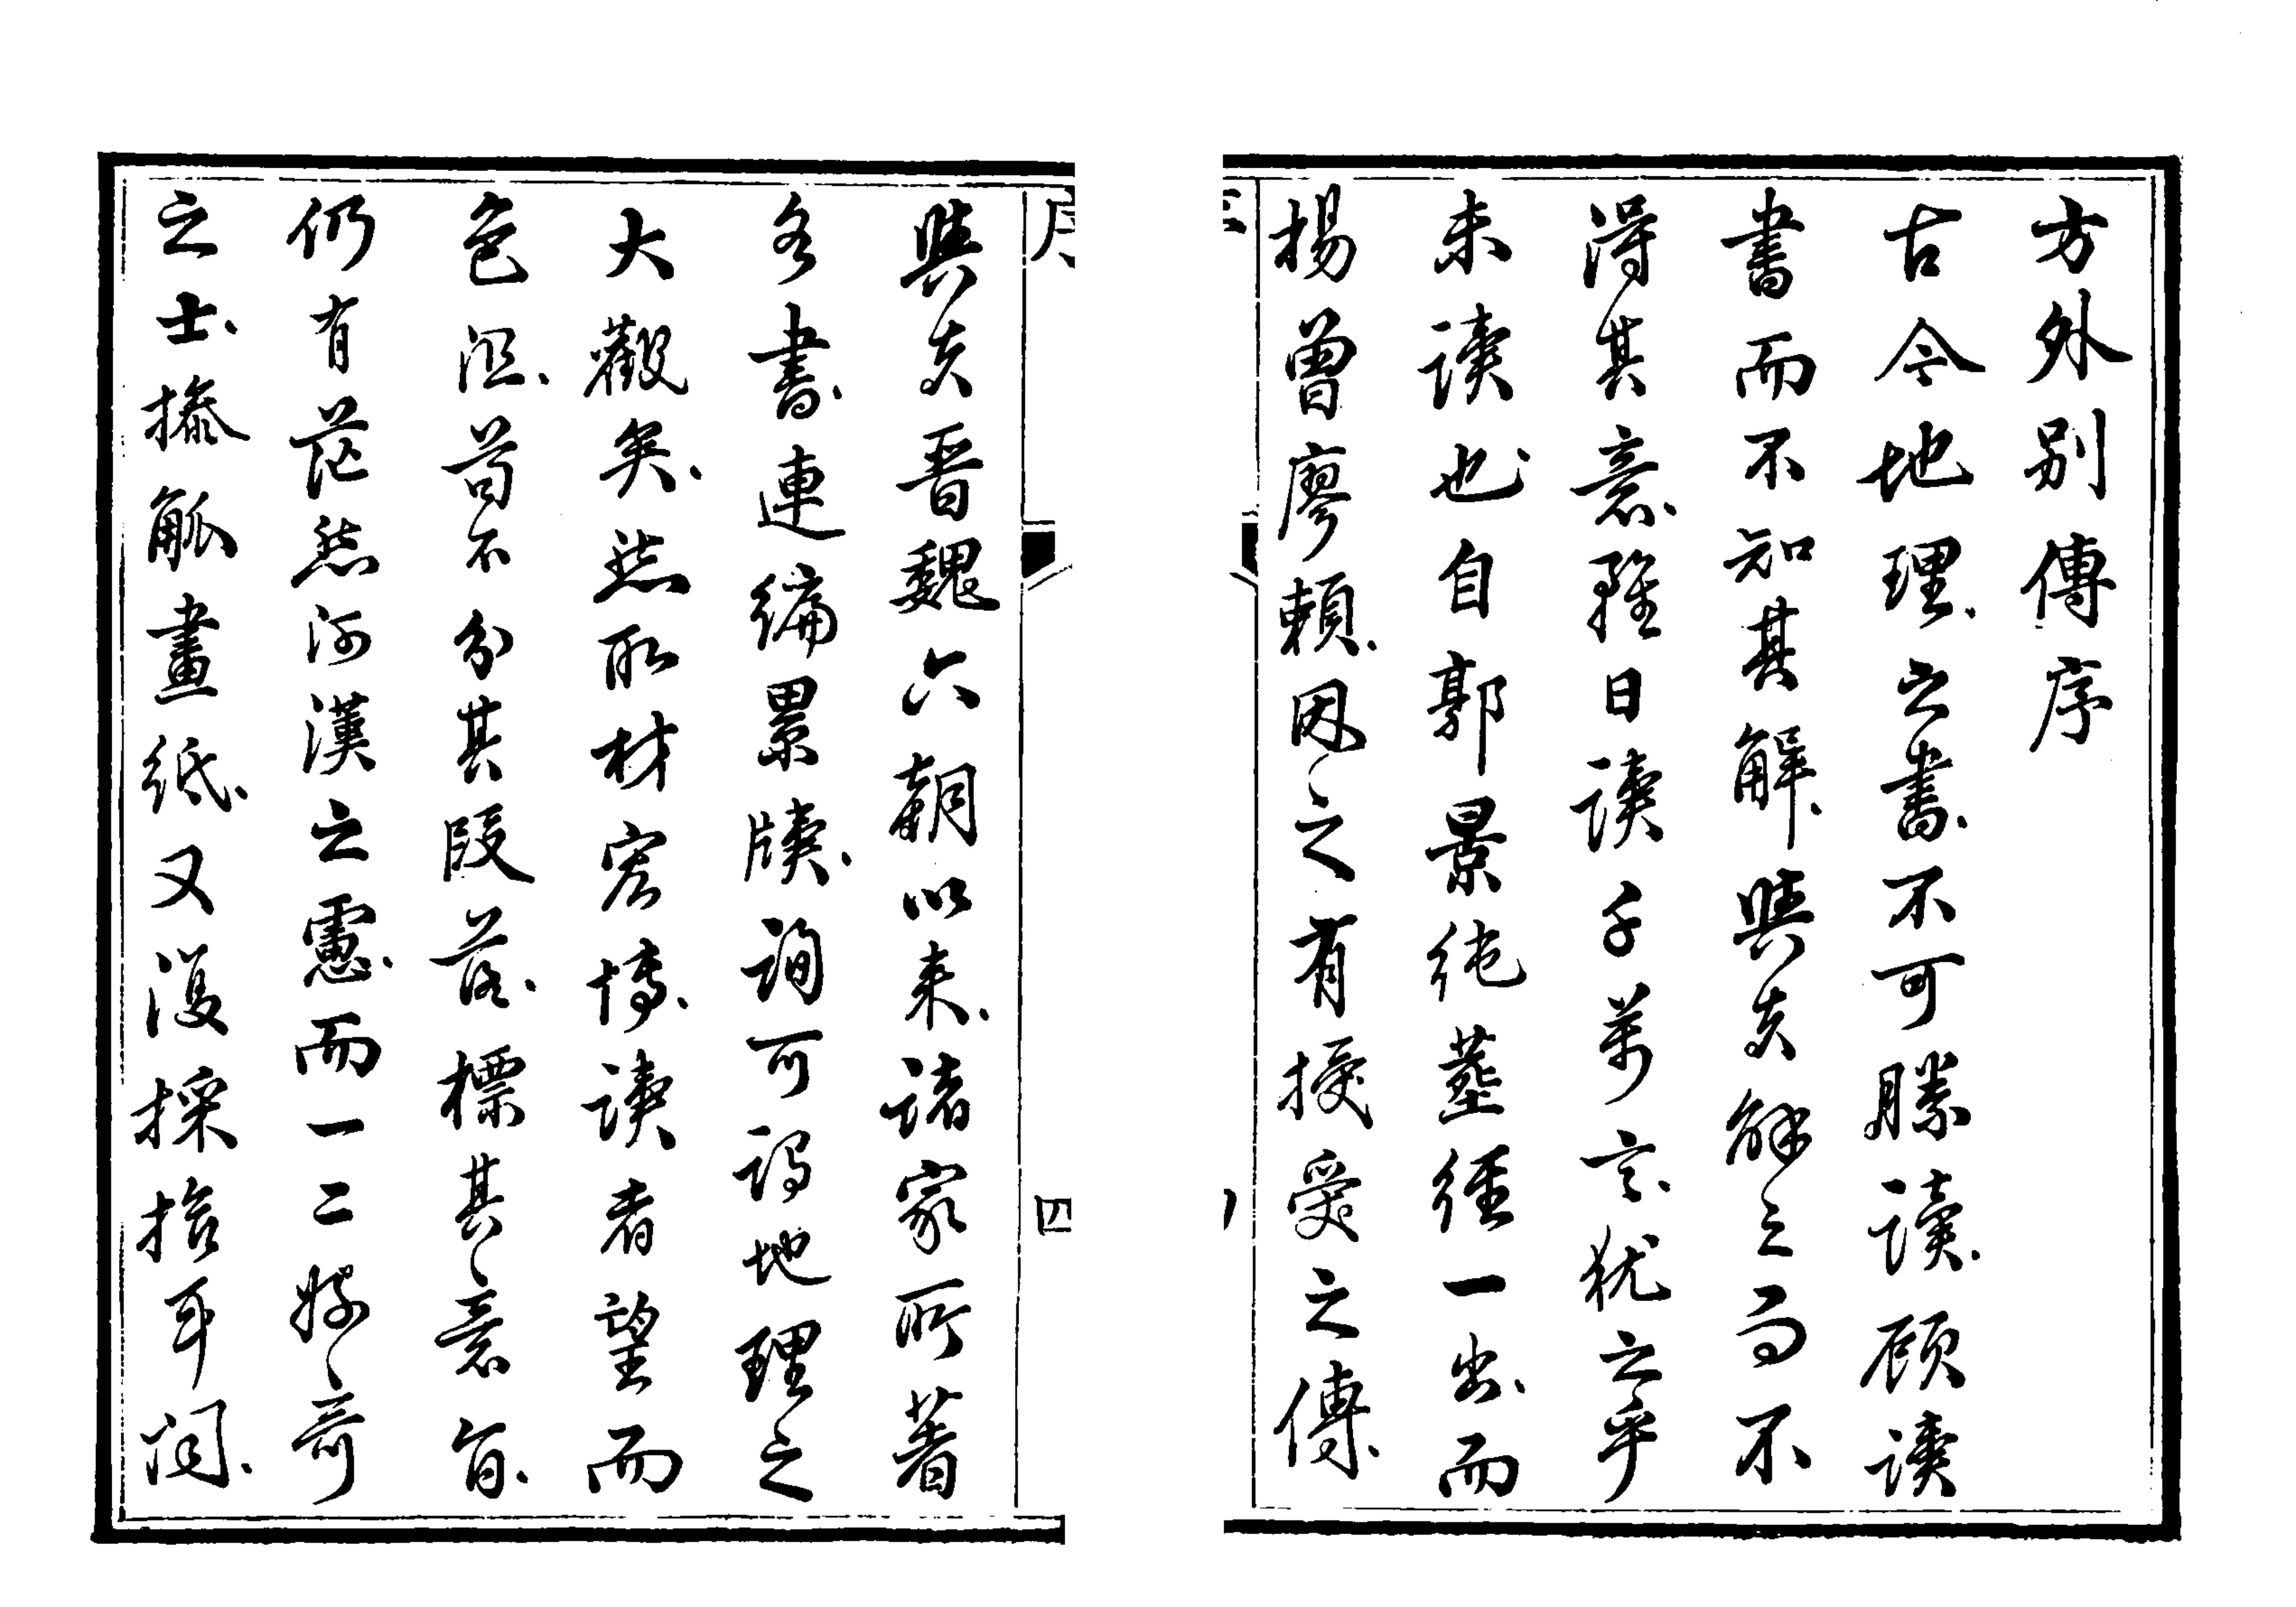 方外别傳序
古今地理之書不可勝讀顾讀
書而不知其解與夫解之而不
得其意雖日讀千萬言犹之乎
未讀也自郭景純葬經一出而
楊曾廖賴因之有授受之傳
序
四
與夫晋魏六朝以来諸家所著
各書連編累牘詢可謂地理之
大觀矣然取材宏博讀者望而
色沮苟不分其段落標其意旨
仍有茫然河漢之慮而一二好奇
之士操觚畫紙又復採拾耳闻